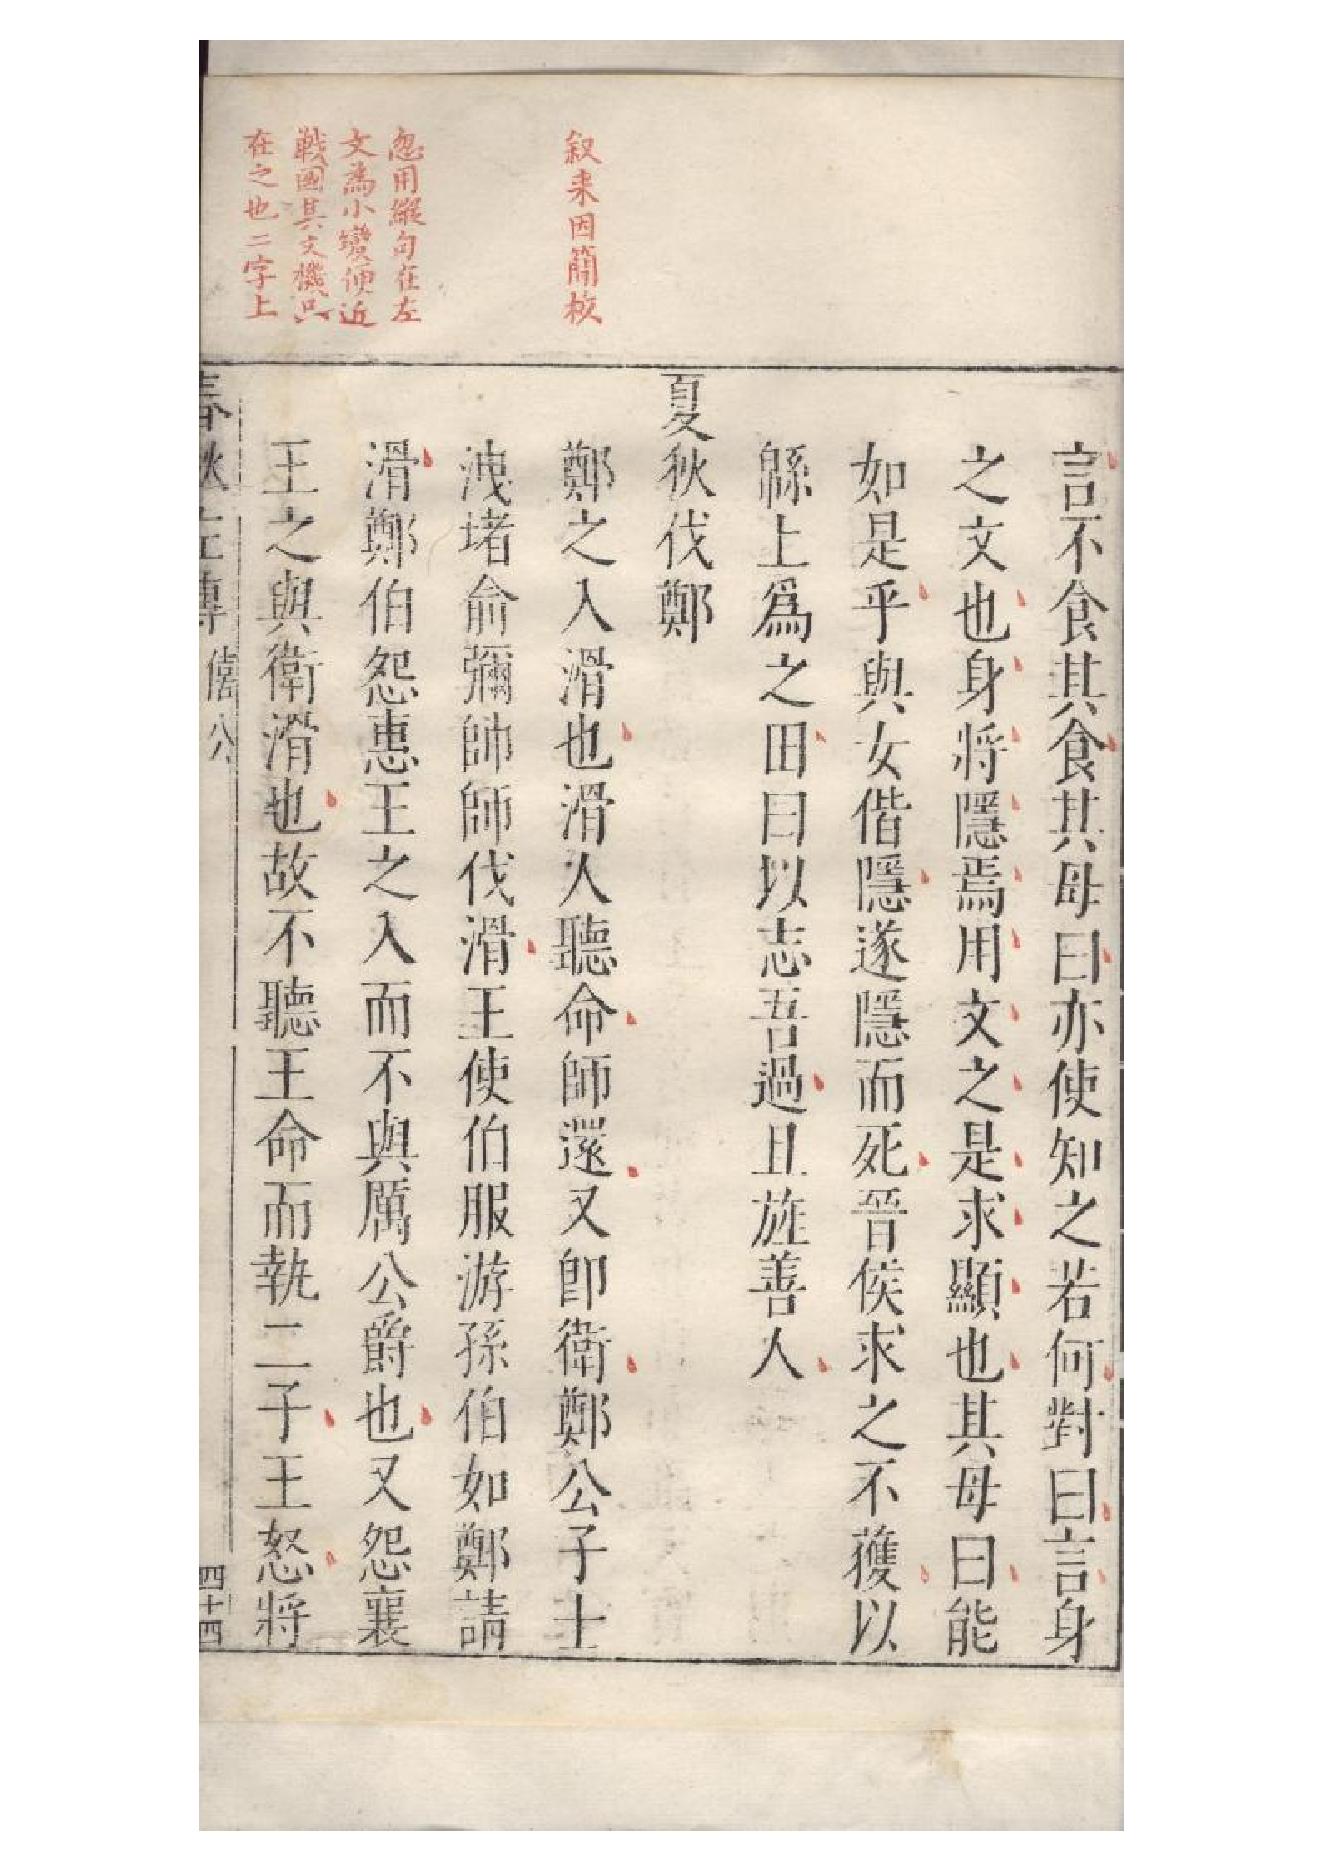 言不食其食其母曰亦使知之若何對曰言身
之文也身將隱焉用文之是求顯也其母曰能
如是乎與女偕隱遂隱而死晉侯求之不獲以
緜上爲之田曰以志吾過且旌善人
夏狄伐鄭
叙来因簡枚
鄭之入滑也滑人聽命師還又卽衛鄭公子士
洩堵俞彌帥師伐滑王使伯服游孫伯如鄭請
滑鄭伯怨惠王之入而不與厲公爵也又怨襄
忽用縱句在左
文為小變便近
戰國其文機只
在之也二字上
王之與衛滑也故不聽王命而執二子王怒將
春秋左傳
僖公
四十四